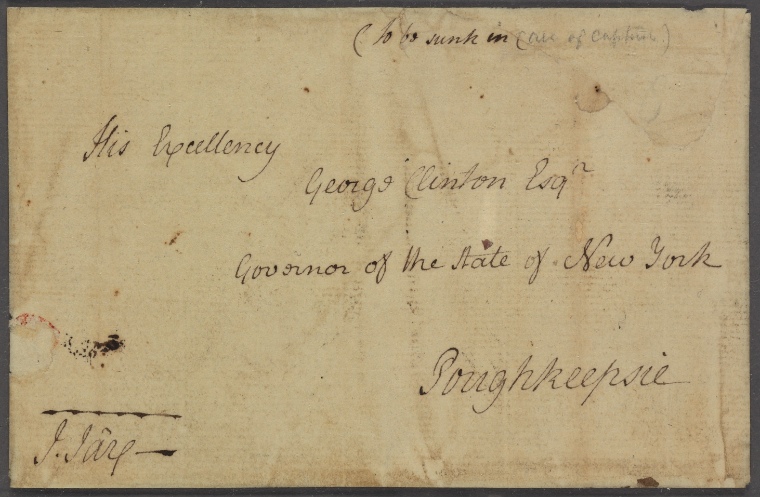 (To be sunk in case of Capture.)
His Excellency
George Clinton Esqr
Governor of the State of New York
Poughkeepsie
J. Jay